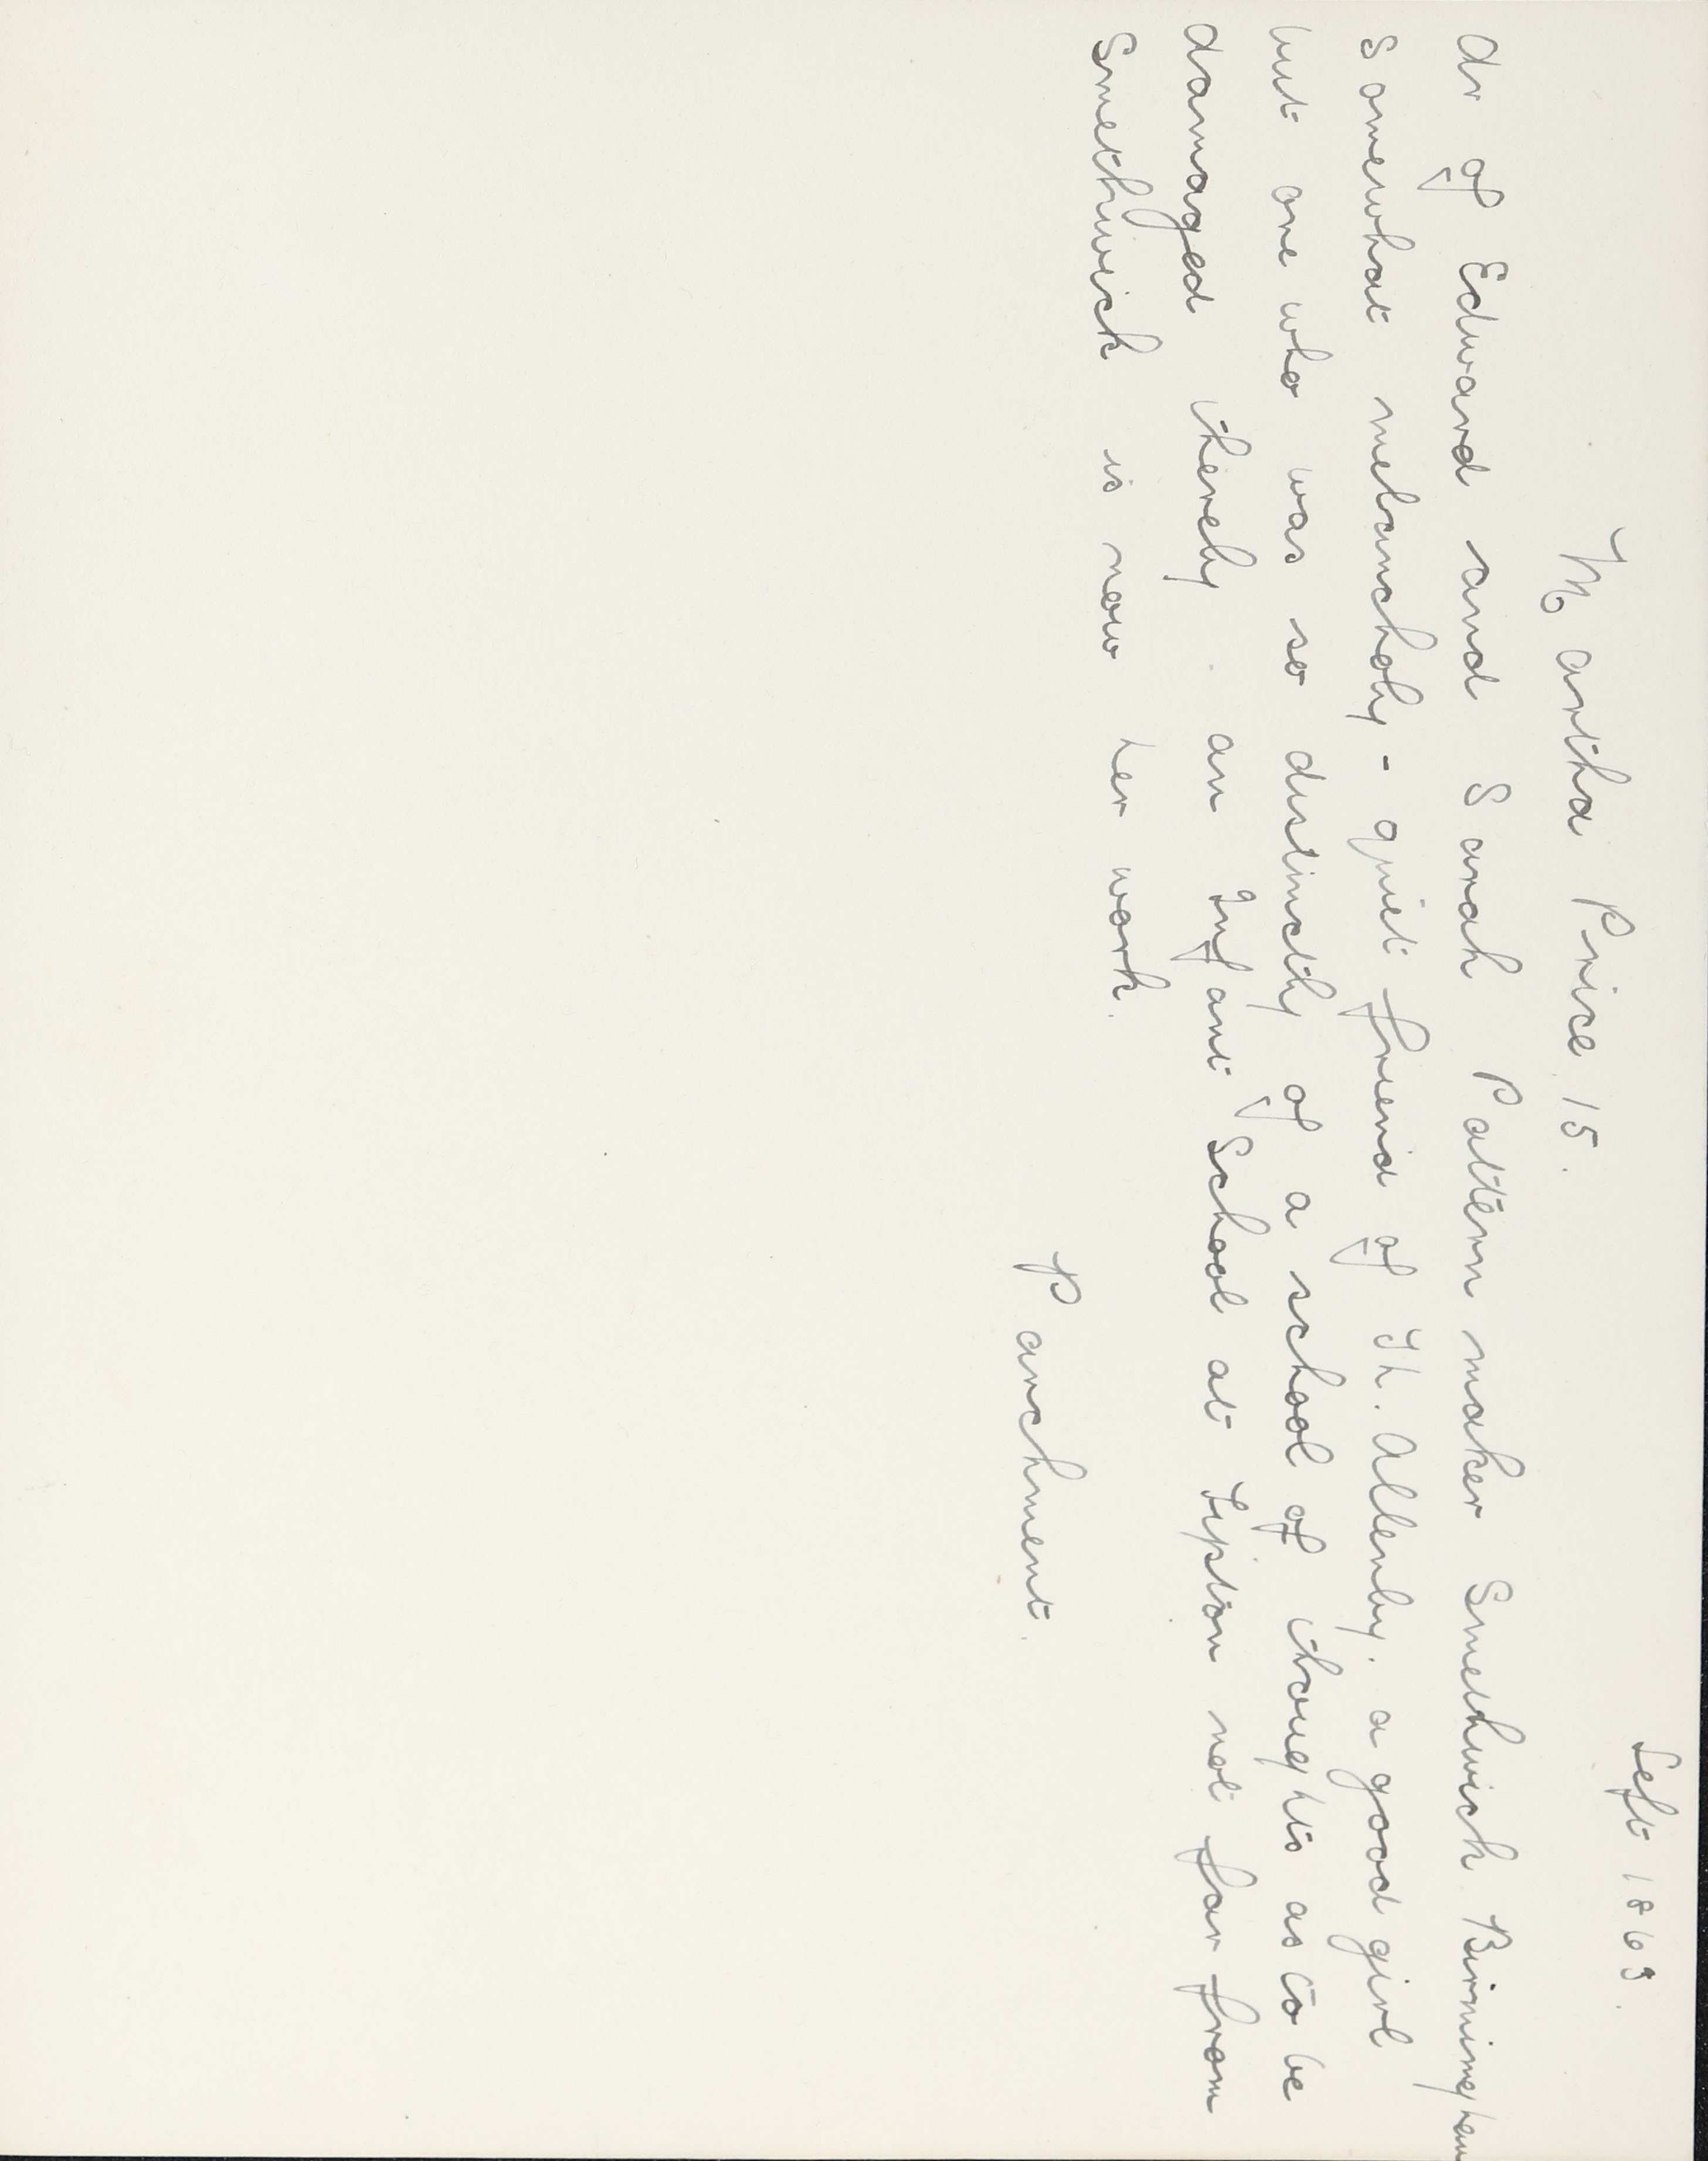 Left 1863.
Martha Price 15.
dr of Edward and Sarah Pattern maker Smethwick Birmingham
Somewhat melancholy - quiet friend of Th. Allenby. a good girl
but one who was so distinctly of a school of thoughts as to be
damaged thereby. an Infant School at Tipton not far from
Smethwick is now her work.
Parchment.